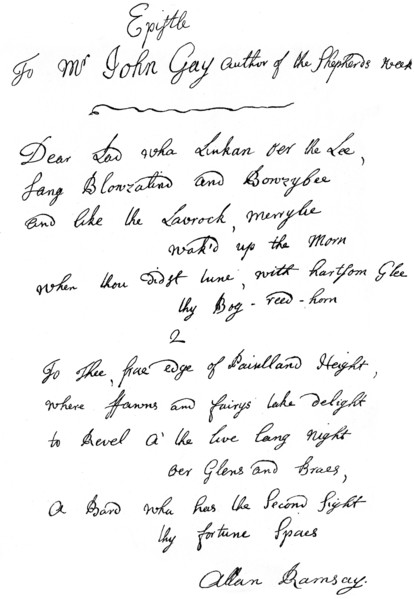 Epistle
To Mr John Gay author of the Shepherds week
Dear Lad wha Linkan o'er the Lee,
Sang Blowzalind and Bowzybee
and like the Lavrock, merrylie
wak'd up the Morn
when thou didst tune, with hartsom Glee
thy Bog-reed-horn
2
To Thee, frae edge of Pentland Height,
where ffawns and fairys take delight
to Revel a' the live lang night
oer Glens and Braes,
a Bard wha has the Second Sight
thy fortune Spaes
Allan Ramsay.